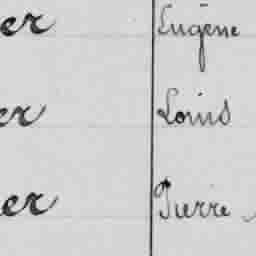 er Eugène
er Louis
er Pierre